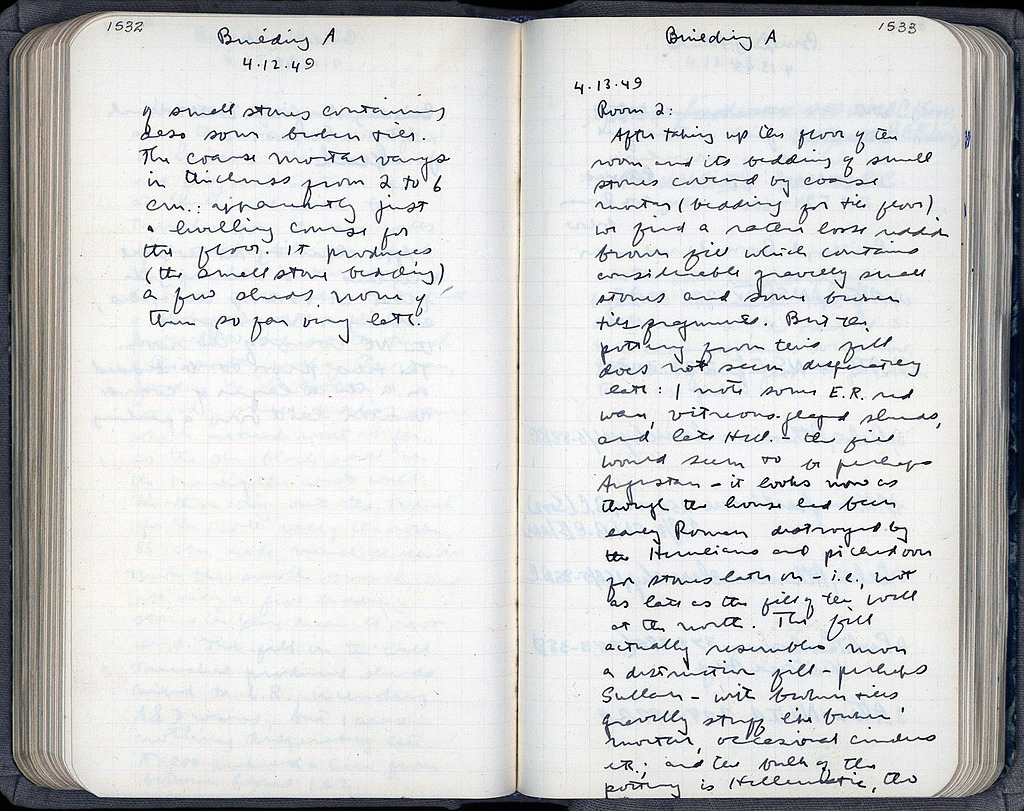 1532
Building A
4.12.49
of small stones containing
also some broken tiles.
The coarse mortar varys
in thickness from 2 to 6
cm.: apparently just
a levelling course for
the floor. It produces
(the small stone bedding)
a few sherds, none of
them so far very late.
1533
Building A
4.13.49
Room 2:
After taking up the floor of the
room and its bedding of small
stones covered by coarse
mortar (bedding for tile floor)
we find a rather loose reddish
brown fill which contains
considerable gravelly small
stones and some broken
tile fragments. But the
pottery from this fill
does not seem desperately
late: I note some E.R. red
ware, vitreous-glazed sherds,
and late Hell. - the fill
would seem to be perhaps
Augustan - it looks now as
though the house had been
early Roman destroyed by
the Herulians and picked over
for stones later on - i.e., not
as late as the fill of the well
at the north. The fill
actually resembles more
a destruction fill - perhaps
Sullan - with broken tiles
gravelly stuff like broken
mortar, occasional cinders
etc.; and the bulk of the
pottery is Hellenistic, the